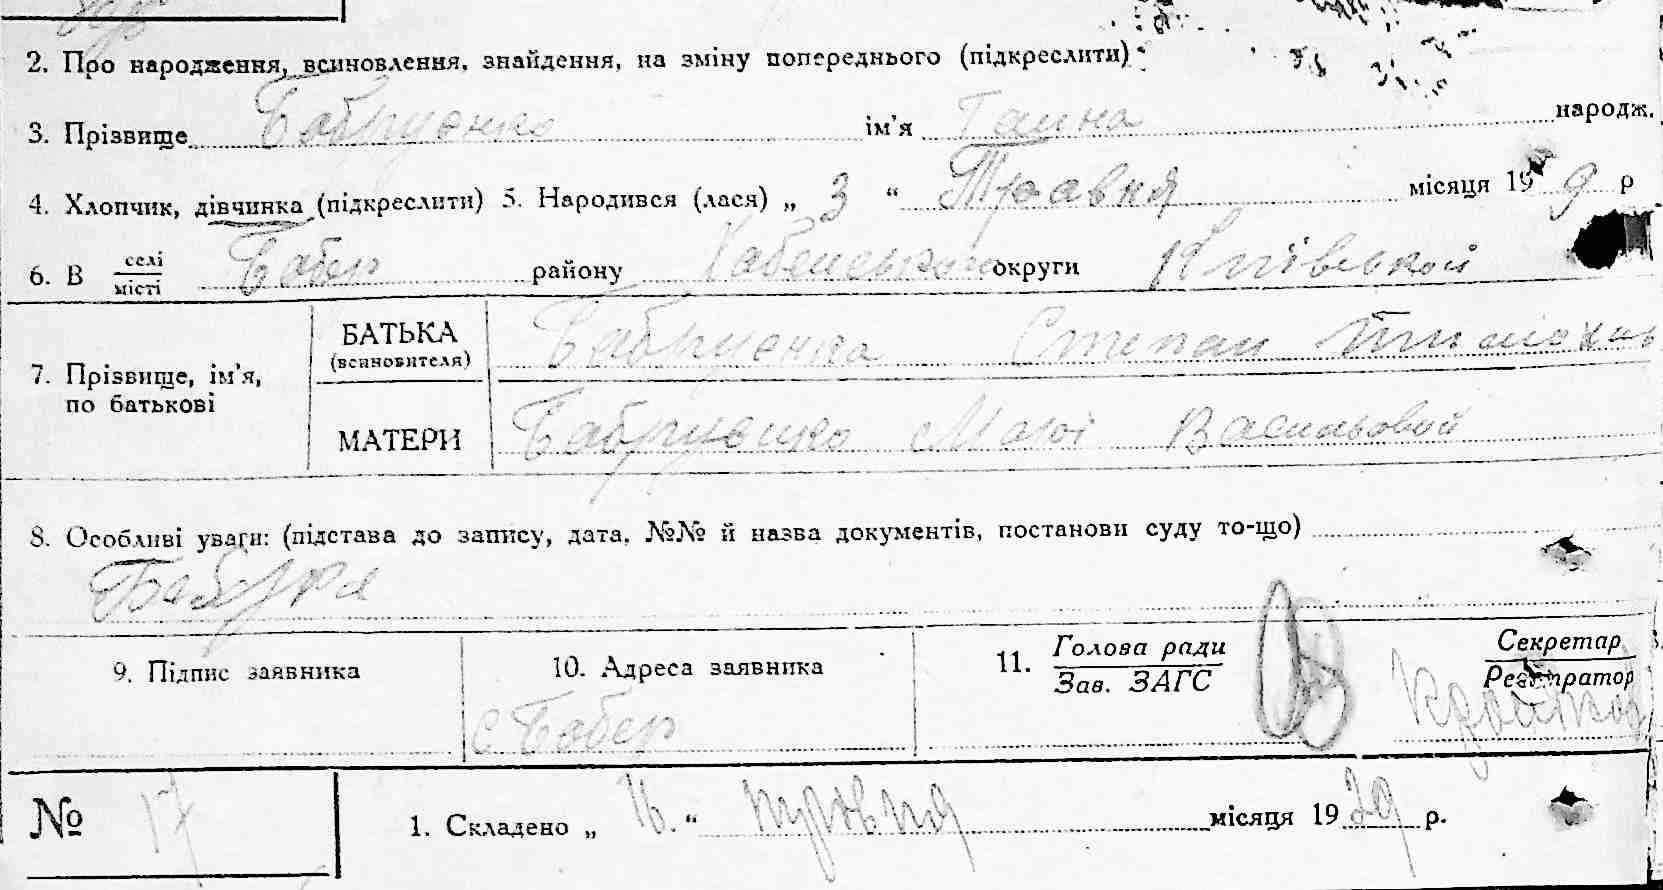 2. Про народження, всиновлення, знайдення, на зміну попереднього (підкреслити)
3. Прізвище Бабруєнко ім'я Ганна народж.
4. Хлопчик, дівчинка (підкреслити) 5. Народився (лася) „ 3 “ Травня місяця 19 9 р
6. В селі/місті Бобер району Хабенського округи Київської
7. Прізвище, ім'я, по батькові
БАТЬКА (всиновителя) Бабруєнка Степан
МАТЕРИ Бабруєнко Марії Васильовой
8. Особливі уваги: (підстава до запису, дата, №№ й назва документів, постанови суду то-що)
9. Підпис заявника
10. Адреса заявника
с Бобер
11. Голова ради/Зав. ЗАГС
Секретар/Регістратор
№ 17
1. Складено „ “ місяця 1929 р.